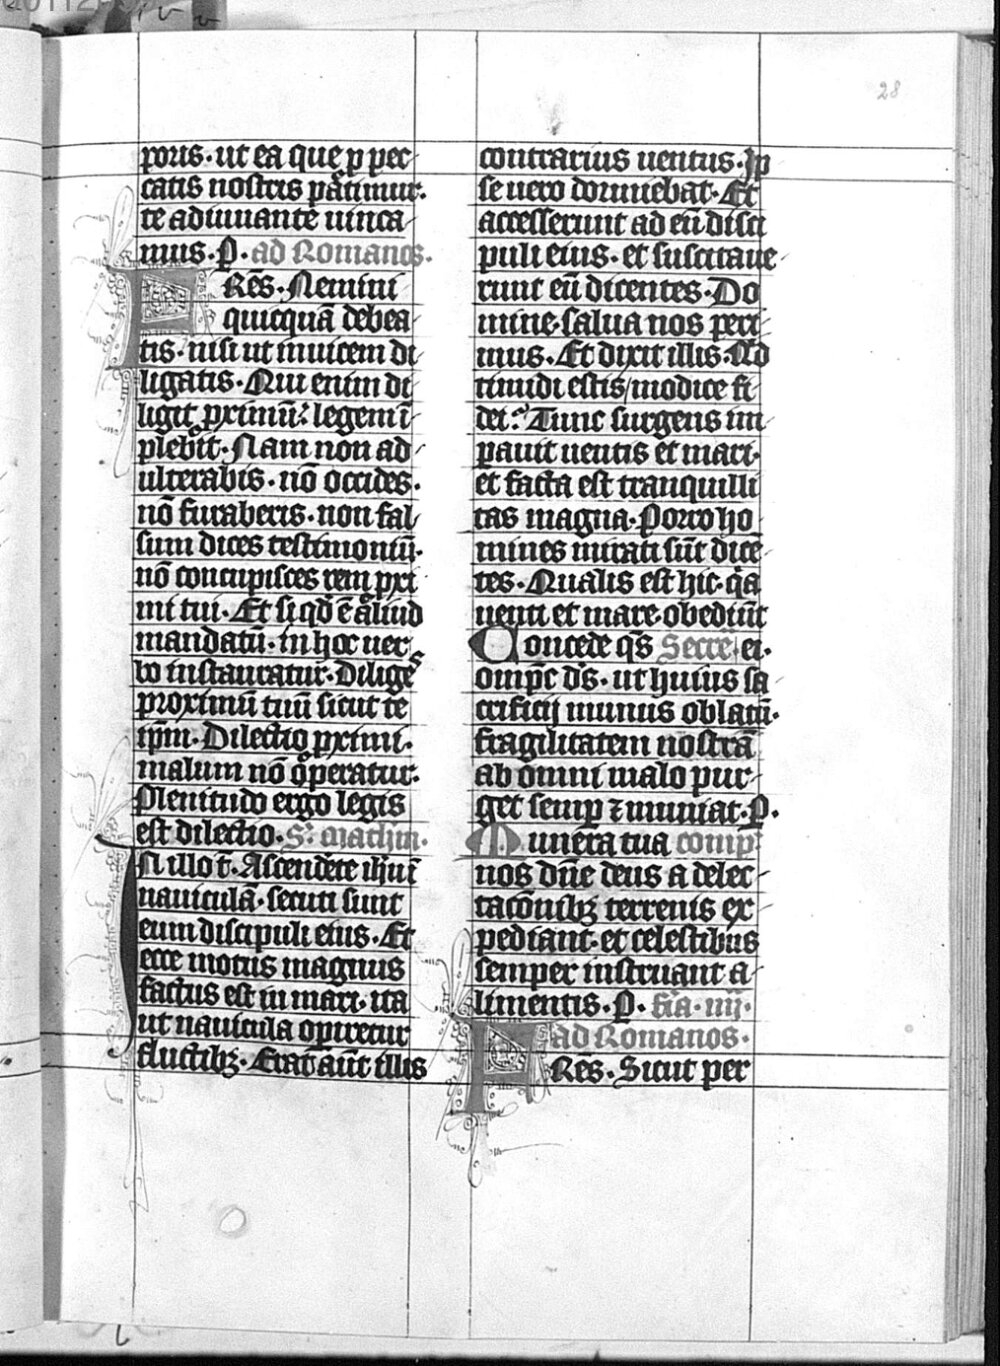 28
poris · ut ea que p̱ pec
catis nostris patimur ·
te adiuuante uinca
mus · P · ad Romanos ·
FRēs · Nemini
quicquā debea
tis · nisi ut inuicem di
ligatis · Qui enim di
ligit p̱ximū : legem ī
pleuit · Nam non ad
ulterabis · nō occides ·
nō furaberis · non fal
sum dices testimoniū ·
nō concupisces rem p̱xi
mi tui · Et si qd̄ ē aliud
mandatū · in hoc uer
bo instauratur · Diliges
proximū tuū sicut te
ip̄m · Dilectio p̱ximi ·
malum nō oꝑatur ·
Plenitudo ergo legis
est dilectio · S · mathm ·
IN illo t̄ · Ascendēte ih̄u ī
nauiculā · secuti sunt
eum discipuli eius · Et
ecce motus magnus
factus est in mari · ita
ut nauicula opiretur
fluctibꝫ · Erat aūt illis
contrarius uentus · Ip
se uero dormiebat · Et
accesserunt ad eū disci
puli eius · et suscitaue
runt eū dicentes · Do
mine · salua nos peri
mus · Et dixit illis · Qd
timidi estis / modice fi
dei : Tunc surgens im
perauit uentis et mari ·
et facta est tranquilli
tas magna · Porro ho
mines mirati sūt dicē
tes · Qualis est hic · qa
uenti et mare obediūt
Concede qs̄ Secre · ei ·
omp̄c ds̄ · ut huius sa
crificij munus oblatū ·
fragilitatem nostrā
ab omni malo pur
get semp̱ ⁊ muniat · P ·
Munera tua comp̄
nos dn̄e deus a delec
tacōnibꝫ terrenis ex
pediant · et celestibus
semper instruant a
limentis · P · fr̄ia · iiij ·
ad Romanos ·
FRēs · Sicut per